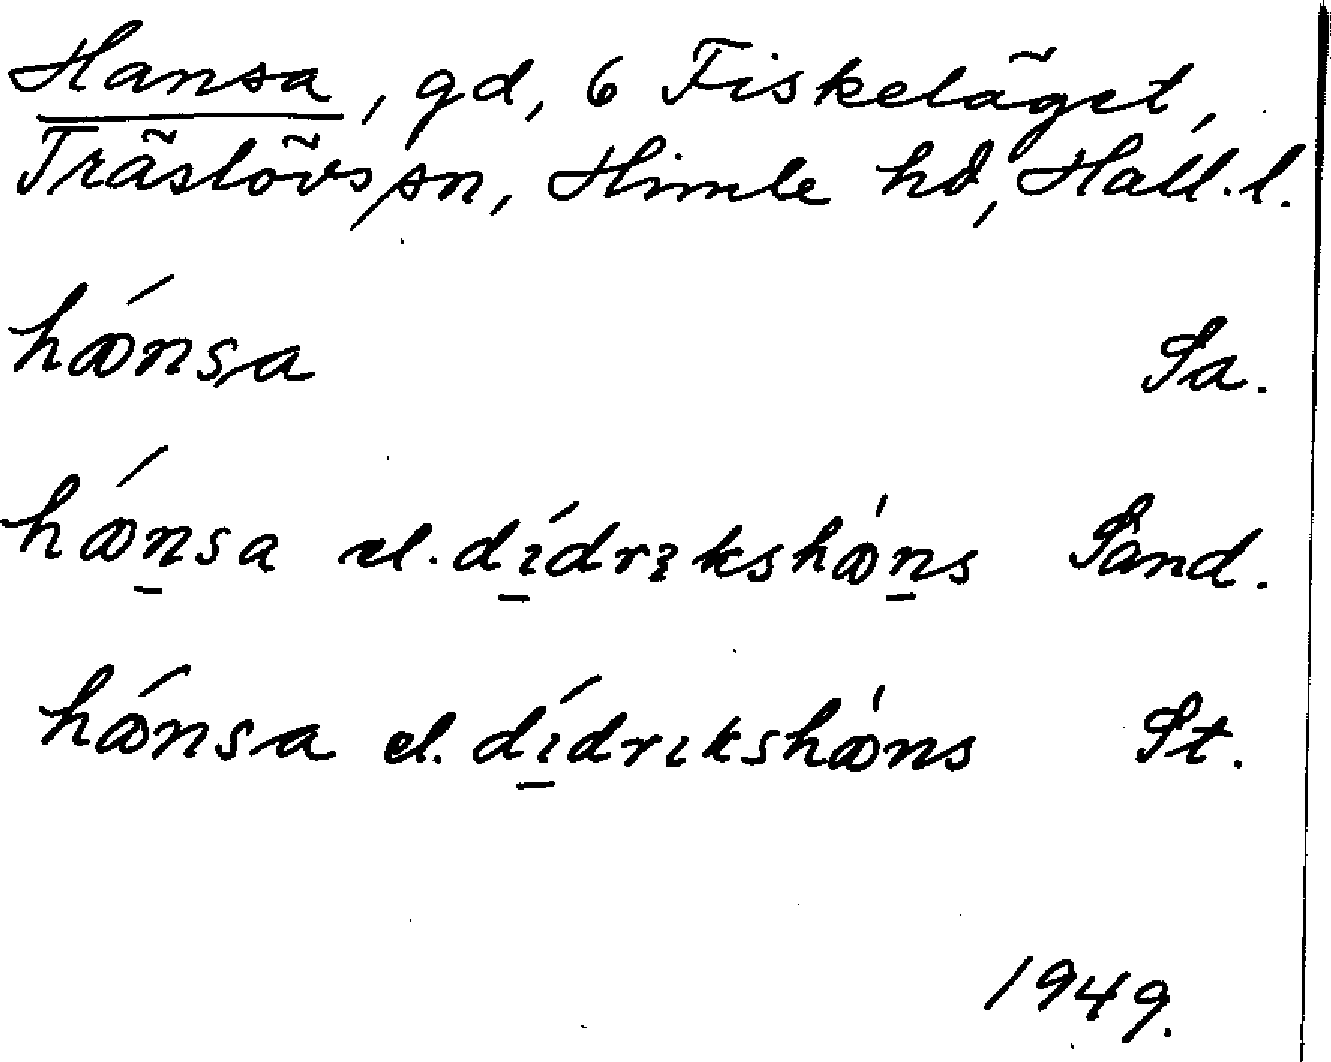 Hansa, gd, 6 Fiskeläget,
Träslövs sn, Himle hd, Hall. l.
hánsa Sa.
hánsa el. dídrikshàns Sand.
hánsa el. dídrıkshàns St.
1949.